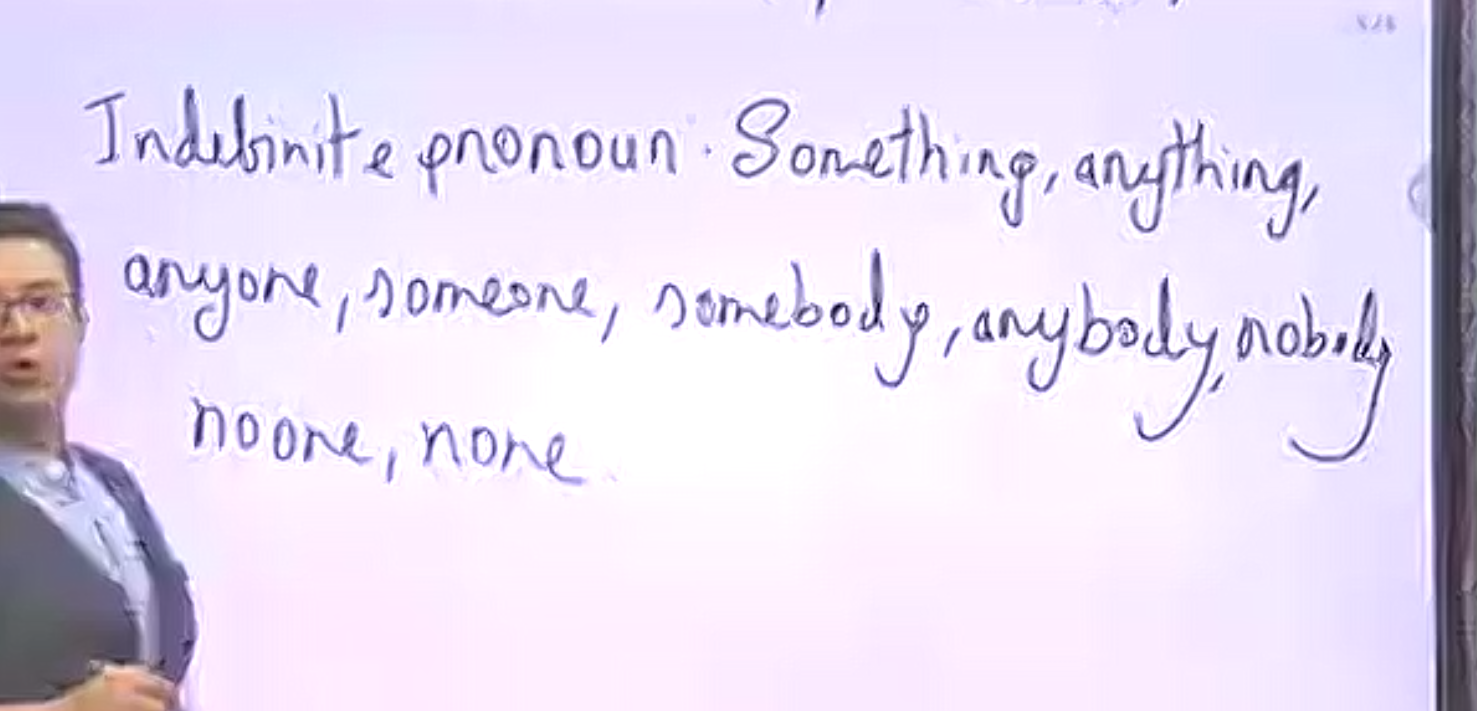 Indefinite pronoun. Something, anything,
anyone, someone, somebody, anybody, nobody
no one, none